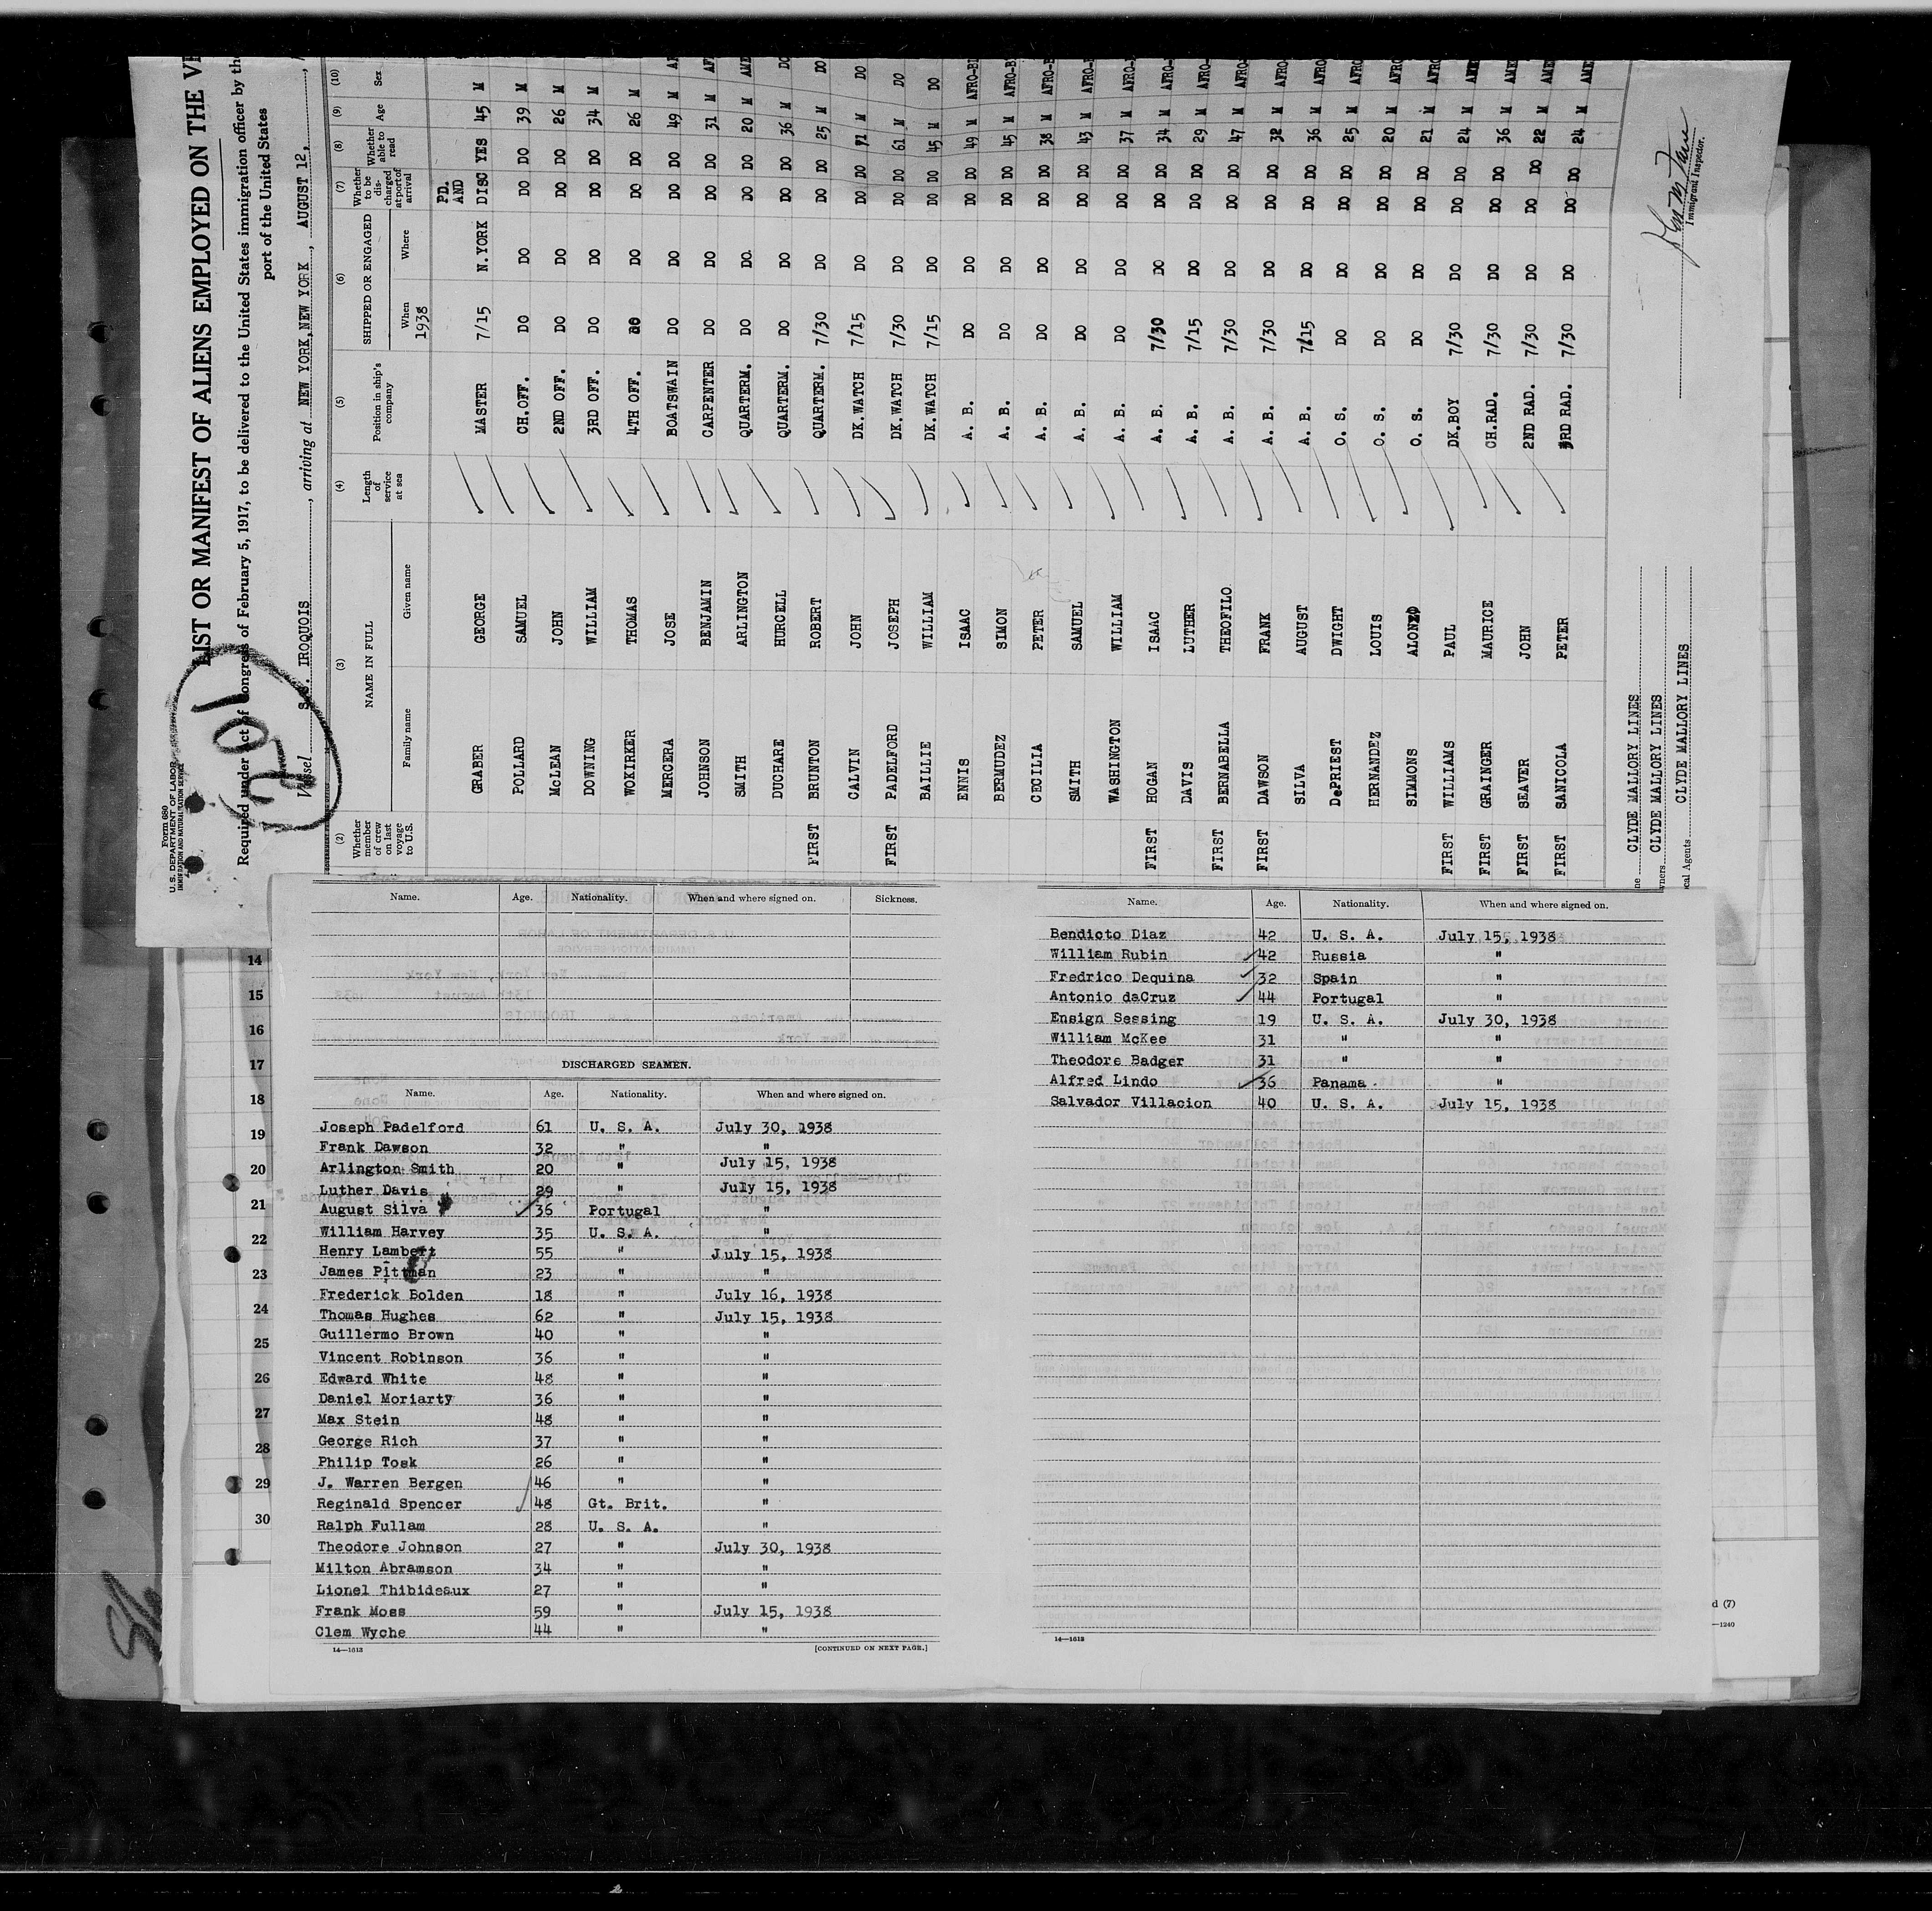 Form 680
U. S. DEPARTMENT OF LABOR
IMMIGRATION AND NATURALIZATION SERVICE
LIST OR MANIFEST OF ALIENS EMPLOYED ON THE
Required under Act of Congress of February 5, 1917, to be delivered to the United States immigration officer by the
port of the United States
Vessel S.S. IROQUOIS, arriving at NEW YORK, NEW YORK, AUGUST 12,
(2) (3) (4) (5) (6) (7) (8) (9) (10)
Whether member of crew on last voyage to U.S. NAME IN FULL Length of service at sea Position in ship's company SHIPPED OR ENGAGED Whether to be discharged at port of arrival Whether able to read Age Sex
Family name Given name When Where
1938 PD. AND
GRABER GEORGE MASTER 7/15 N.YORK DISC YES 45 M
POLLARD SAMUEL CH.OFF. DO DO DO DO 39 M
McLEAN JOHN 2ND OFF. DO DO DO DO 26 M
DOWNING WILLIAM 3RD OFF. DO DO DO DO 34 M
WOKIRKER THOMAS 4TH OFF. DO DO DO DO 26 M
MERCERA JOSE BOATSWAIN DO DO DO DO 49 M
JOHNSON BENJAMIN CARPENTER DO DO DO DO 31 M
SMITH ARLINGTON QUARTERM. DO DO. DO DO 20 M
DUCHARE HURCELL QUARTERM. DO DO DO DO 36 M DO
FIRST BRUNTON ROBERT QUARTERM. 7/30 DO DO DO 25 M DO
CALVIN JOHN DK.WATCH 7/15 DO DO DO 71 M DO
FIRST PADELFORD JOSEPH DK.WATCH 7/30 DO DO DO 61 M DO
BAILLIE WILLIAM DK.WATCH 7/15 DO DO DO 45 M DO
ENNIS ISAAC A. B. DO DO DO DO 49 M
BERMUDEZ SIMON A. B. DO DO DO DO 45 M
CECILIA PETER A. B. DO DO DO DO 38 M
SMITH SAMUEL A. B. DO DO DO DO 43 M
WASHINGTON WILLIAM A. B. DO DO DO DO 37 M
FIRST HOGAN ISAAC A. B. 7/30 DO DO DO 34 M
DAVIS LUTHER A. B. 7/15 DO DO DO 29 M
FIRST BERNABELLA THEOFILO A. B. 7/30 DO DO DO 47 M
FIRST DAWSON FRANK A. B. 7/30 DO DO DO 32 M
SILVA AUGUST A. B. 7/15 DO DO DO 36 M
DePRIEST DWIGHT O. S. DO DO DO DO 25 M
HERNANDEZ LOUIS O. S. DO DO DO DO 20 M
SIMMONS O. S. DO DO DO DO 21 M
FIRST WILLIAMS PAUL DK.BOY 7/30 DO DO DO 24 M
FIRST GRAINGER MAURICE CH.RAD. 7/30 DO DO DO 36 M
FIRST SEAVER JOHN 2ND RAD. 7/30 DO DO DO 22 M
FIRST SANICOLA PETER 3RD RAD. 7/30 DO DO DO 24 M
CLYDE MALLORY LINES
CLYDE MALLORY LINES
CLYDE MALLORY LINES
Immigrant Inspector.
14
15
16
17
18
19
20
21
22
23
24
25
26
27
28
29
30
Name. Age. Nationality. When and where signed on. Sickness.
DISCHARGED SEAMEN.
Name. Age. Nationality. When and where signed on.
Joseph Padelford 61 U. S. A. July 30, 1938
Frank Dawson 32 " "
Arlington Smith 20 " July 15, 1938
Luther Davis 29 " July 15, 1938
August Silva 36 Portugal "
William Harvey 35 U. S. A. "
Henry Lambert 55 " July 15, 1938
James Pittman 23 " "
Frederick Bolden 18 " July 16, 1938
Thomas Hughes 62 " July 15, 1938
Guillermo Brown 40 " "
Vincent Robinson 36 " "
Edward White 48 " "
Daniel Moriarty 36 " "
Max Stein 48 " "
George Rich 37 " "
Philip Tosk 26 " "
J. Warren Bergen 46 " "
Reginald Spencer 48 Gt. Brit. "
Ralph Fullam 28 U. S. A. "
Theodore Johnson 27 " July 30, 1938
Milton Abramson 34 " "
Lionel Thibideaux 27 " "
Frank Moss 59 " July 15, 1938
Clem Wyche 44 " "
14—1613 [CONTINUED ON NEXT PAGE.]
Name. Age. Nationality. When and where signed on.
Bendicto Diaz 42 U. S. A. July 15, 1938
William Rubin 42 Russia "
Fredrico Dequina 32 Spain "
Antonio daCruz 44 Portugal "
Ensign Sessing 19 U. S. A. July 30, 1938
William McKee 31 " "
Theodore Badger 31 " "
Alfred Lindo 36 Panama "
Salvador Villacion 40 U. S. A. July 15, 1938
14—1613